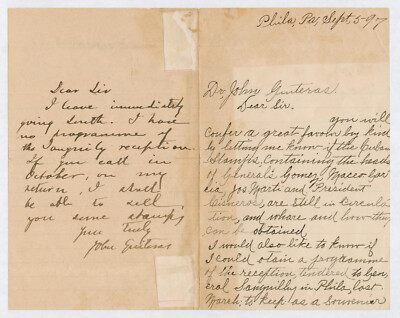 Dear Sir
I leave immediately
going South. I have
no programme of
the Sanguily reception.
If you call in
October, on my
return, I shall
be able to sell
you some stamps,
Yours Truly
John Guiteras
Phila, Pa, Sept, 5-97
Dr John Guiteras.
Dear Sir.
you will
confer a great favour by kind
ly letting me know if the Cuban
Stamps, Containing the heads
of Generals Gomez, Maceo, Gar
cia, Jos Marti and President
Cisneros, are still in circula
tion, and where and how they
can be obtained.
I would also like to know if
I could obtain a programme
of the reception tendered to Gen
eral Sanguilly in Phila last
March to keep as a Souvenir